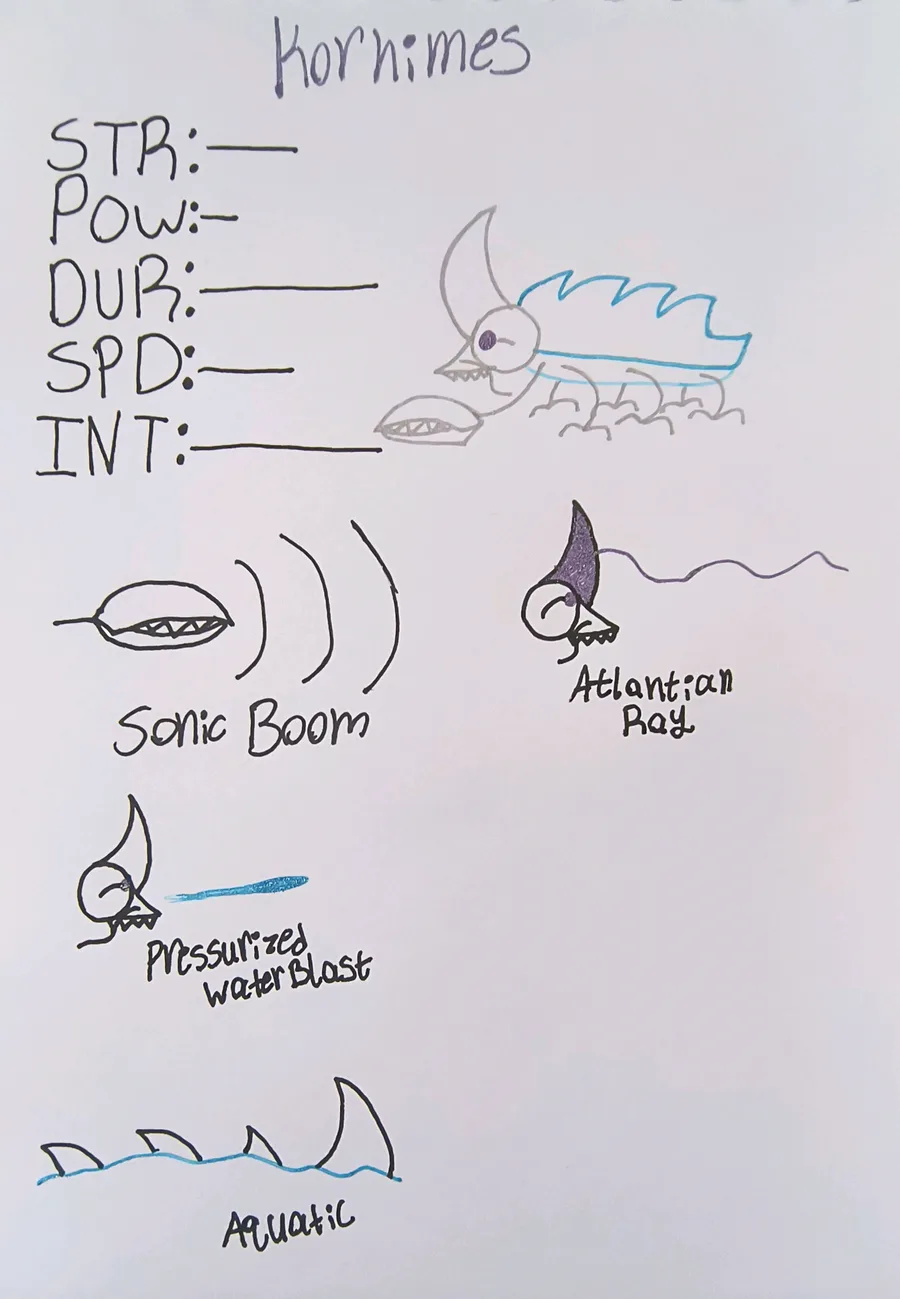 Kornimes
STR:
POW:
DUR:
SPD:
INT:
Sonic Boom
Atlantian
Ray
Pressurized
Water Blast
Aquatic